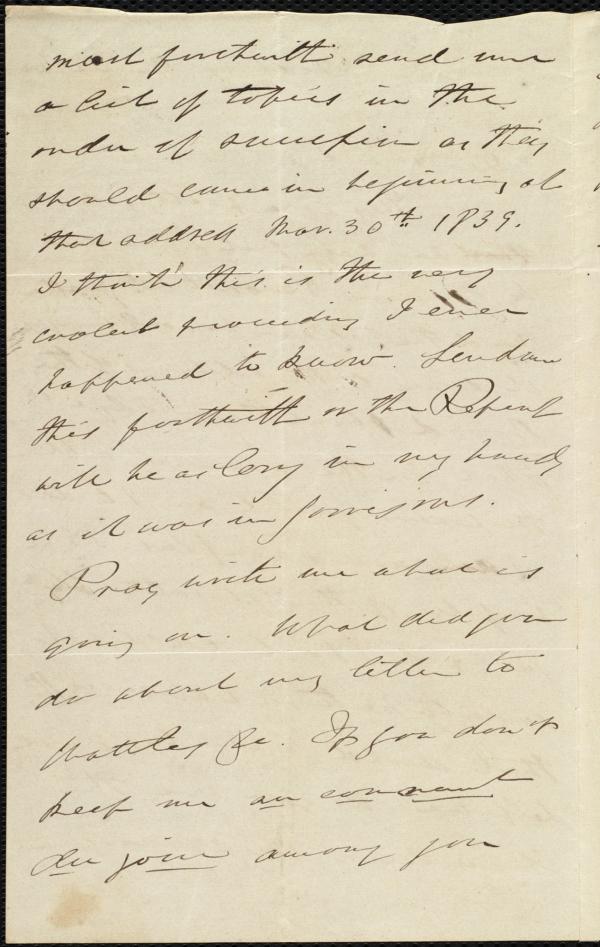 must forthwith send me
a list of topics in the
order of succession as they
should come in beginning at
that address Mar. 30th 1839.
I think this is the very
coolest proceeding I ever
happened to know. Send me
this forthwith or the Report
will be as long in my hands
as it was in Garrison's.
Pray write me what is
going on. What did you
do about my letter to
Wattles &c. If you don't
keep me au courant
du jour among you